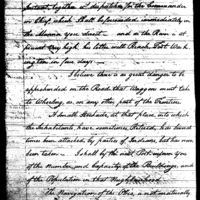 portant, together with dispatches for the Commander
in Chief, which shall be forwarded immediately in
the Manner you direct — and as the River is at
present very high his letter will Reach Fort Wash-
ington in few days —
I believe there is great danger to be
apprehended on the Road that Waggons must take
to Wheeling, as on any other part of the Frontier
A small Stockade, at that place into which
the Inhabitants have sometimes Retired, has several
times been attacked by parties of Indians, but has never
been taken — I shall by the next Post inform you
of the Number and Capacity of the Buildings and
of the Population in that Neighbourhood
The Navigation of the Ohio, is not materially